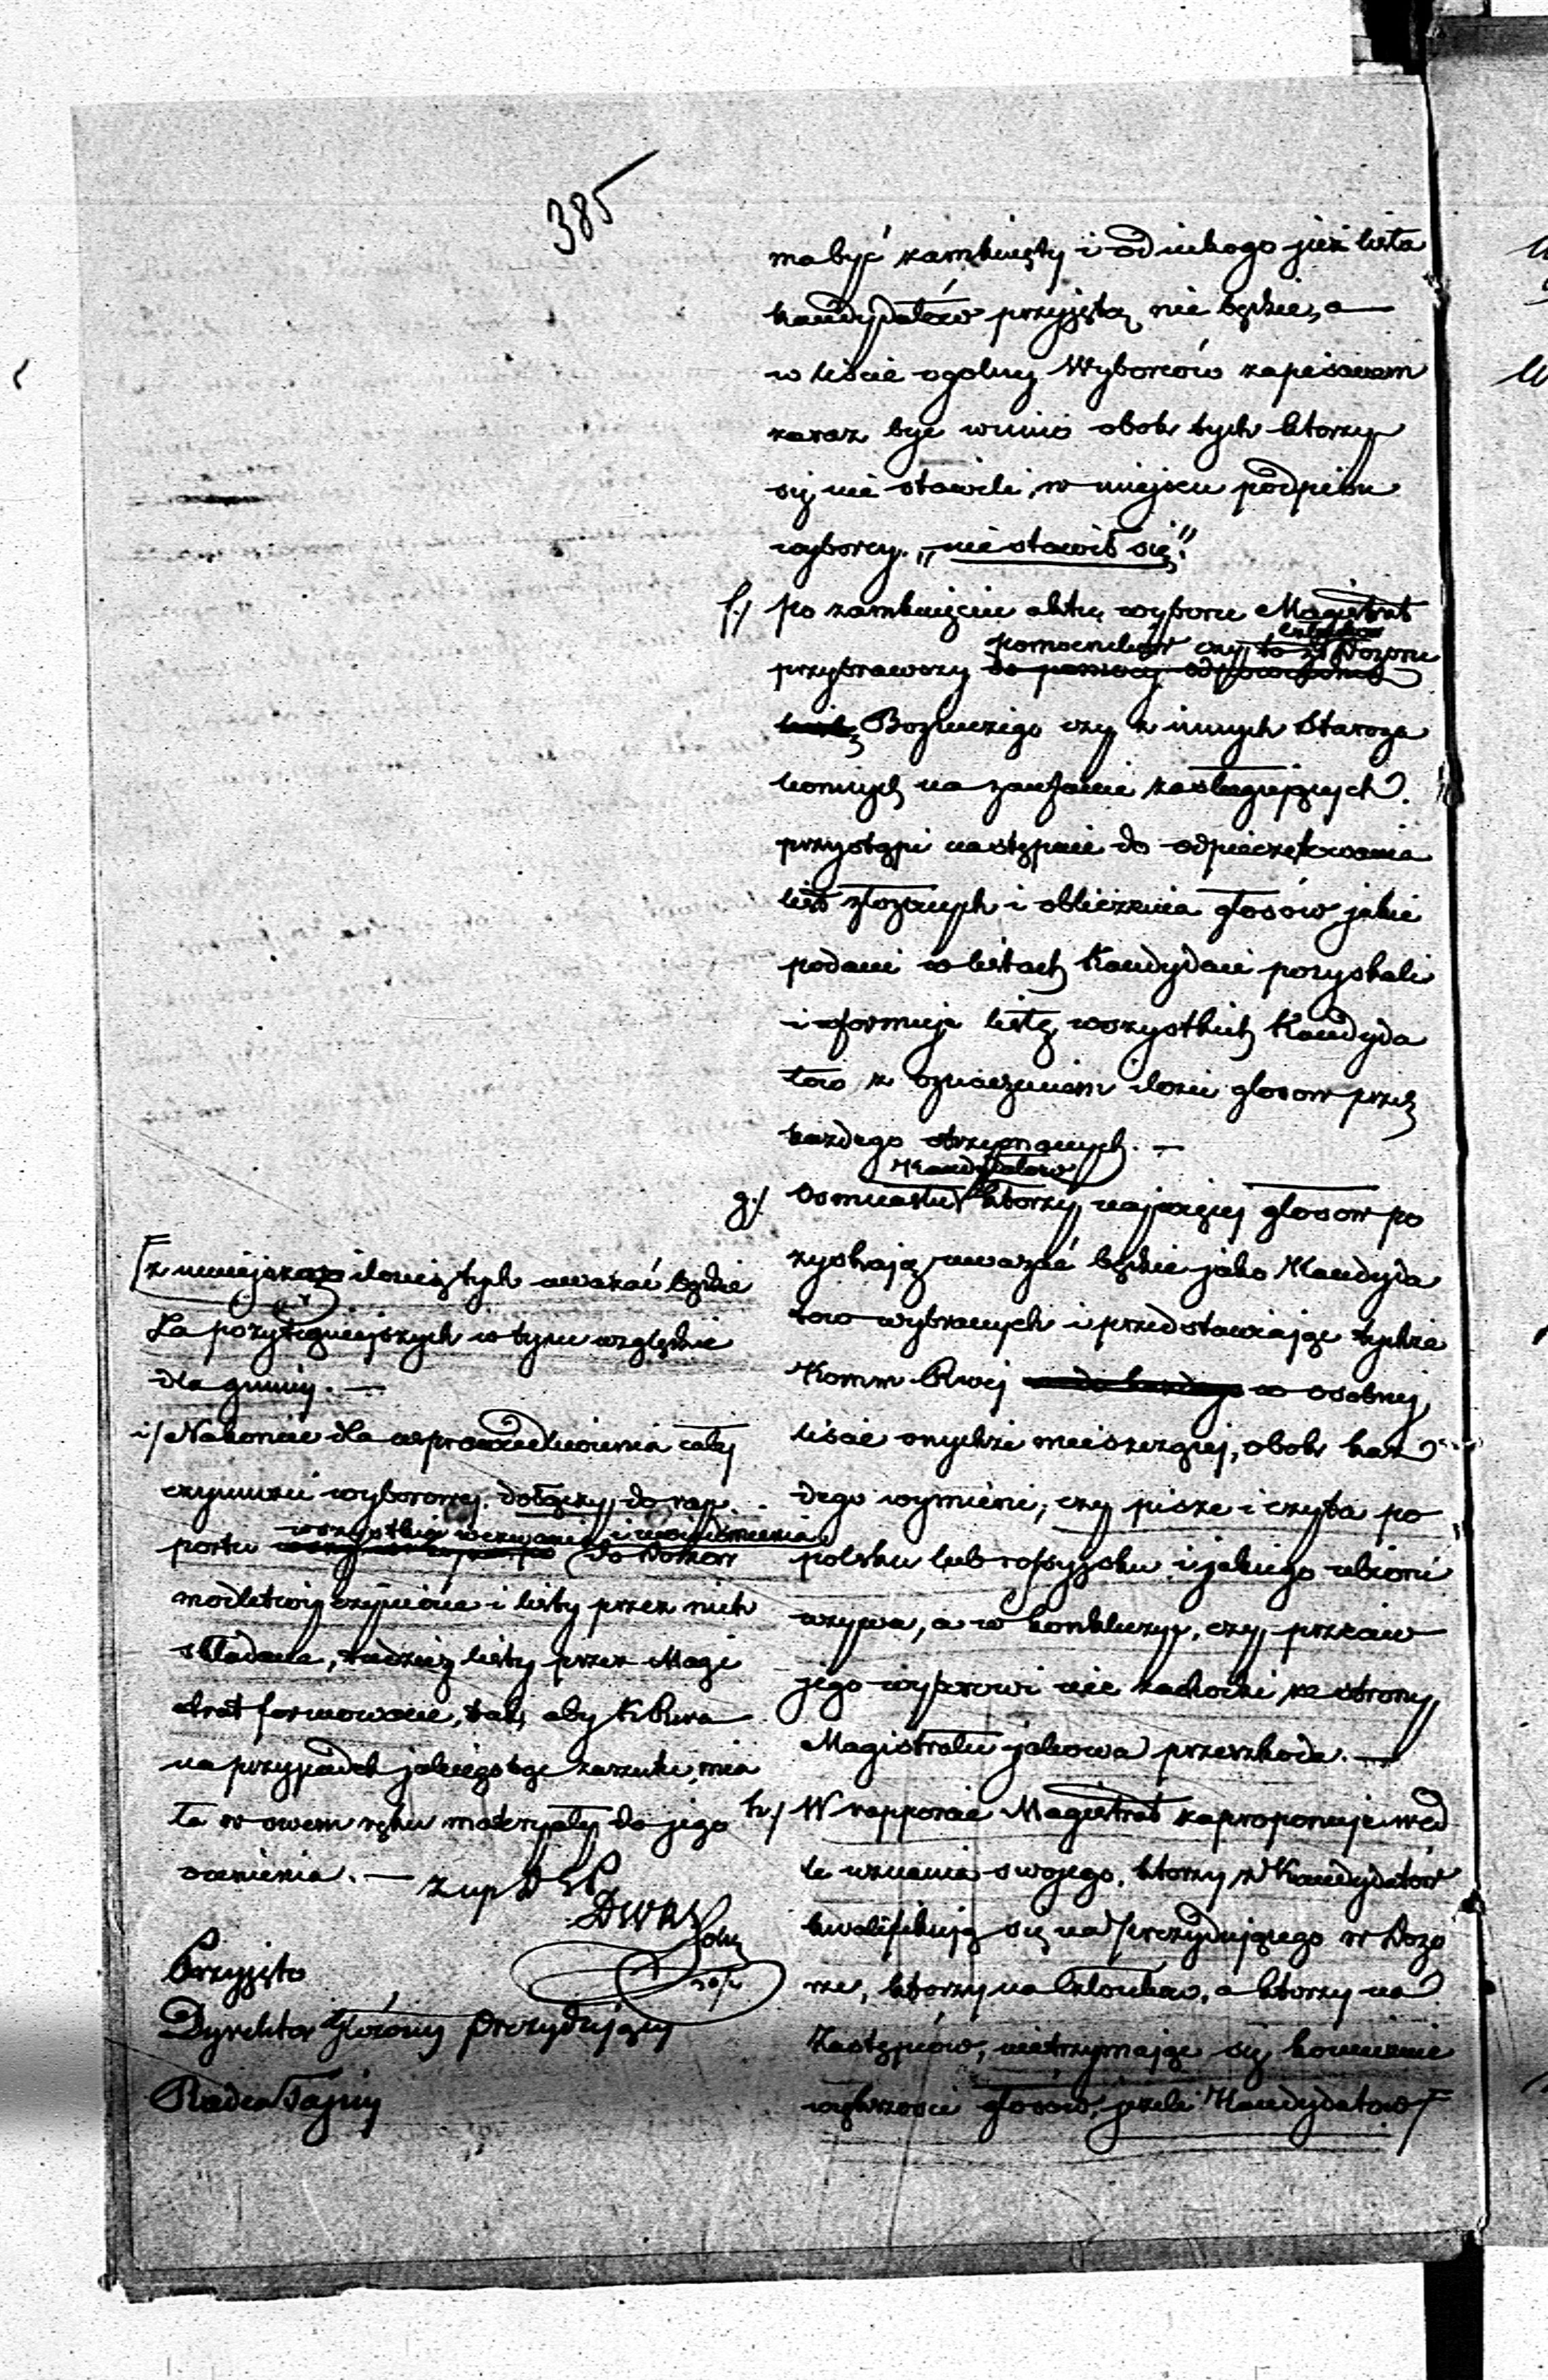 385
ma być zamknięty i od nikogo już lista
kandydatów przyjętą nie będzie, a
w liście ogolnej Wyborców zapisanem
zaraz być winno obok tych ktorzy
się nie stawili, w miejscu podpisu
wyborcy. „nie stawił się."
f./ po zamknięciu aktu wyboru Magistrat
pomocników czy to z Dozoru
przybrawszy do pomocy
Bożniczego czy z innych Staroza
konnych na zaufanie zasługujących.
przystąpi następnie do odpieczętowania
list złożonych i obliczenia głosów jakie
podani w listach Kandydaci pozyskali
i uformuje listę wszystkich Kandyda
tow z oznaczeniem ilości glosow przez
każdego otrzymanych. —
Kandydatow
g./ Osmnastu ktorzy najwięcej glosow po
zyskają uważać będzie jako Kandyda
tow wybranych i przedstawiając tychże
Komm Rwej w osobnej
liście onychże mieszczącej, obok każ
dego wymieni, czy pisze i czyta po
polsku lub rossyjsku i jakiego ubioru
używa, a w konkluzyi, czy przeciw
jego wyborowi nie zachodzi ze strony
Magistratu jakowa przeszkoda. —
h./ W rapporcie Magistrat zaproponuje wed
le uznania swojego, ktorzy z Kandydatów
kwalifikują się na Prezydującego w Dozo
rze, ktorzy na Członkow, a ktorzy na
Zastępców, nietrzymając się koniecznie
większości głosów, jeżeli Kandydatow
z mniejszą ilością tych uważać będzie
za pożyteczniejszych w tym względzie
dla gminy. —
i/ Nakoniec dla usprawiedliwienia całej
czynności wyborowej, dołączy do rap
wszystkie wezwania i uwiadomienia
portu do Domow
modlitwy czynione i listy przez nich
składane, tudzież listy przez Magi
strat formowane, tak, aby K Rwa
na przypadek jakiegobądź zarzutu, mia
ła w swem ręku materyały do jego
ocenienia. —
Przyjęto
Dyrektor Główny Prezydujący
Radca Tajny